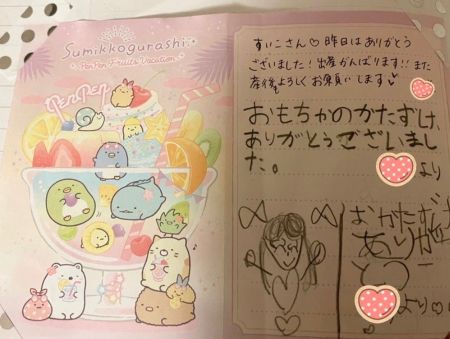 Sumikkogurashi
PenPen Fruits Vacation
PenPen
すいこさん♡昨日はありがとう
ございました！出産がんばります!!また
産後もよろしくお願いします
おもちゃのかたずけ、
ありがとうございまし
た。
より
おかたづけ
ありが
とう
より